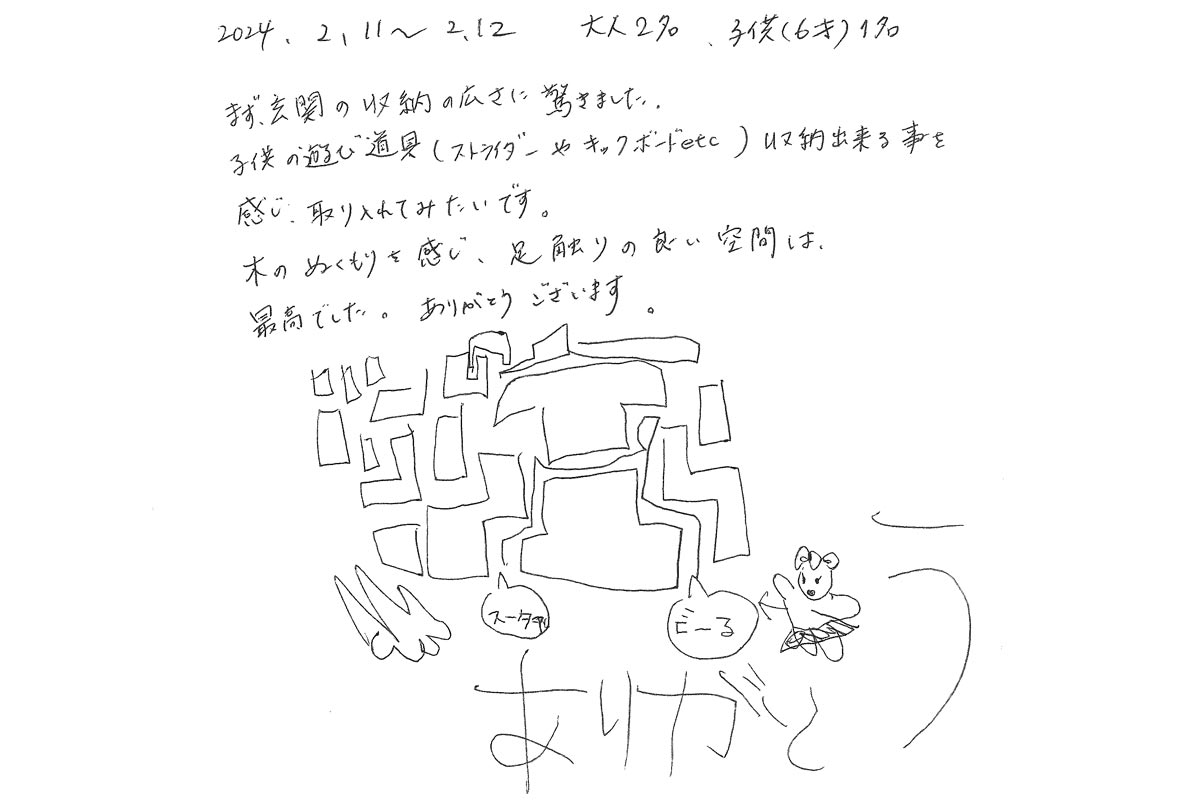 2024. 2.11〜2.12 大人2名、子供(6才)1名
まず、玄関の収納の広さに驚きました.
子供の遊び道具(ストライダーやキックボードetc)収納出来る事を
感じ、取り入れてみたいです。
木のぬくもりを感じ、足触りの良い空間は、
最高でした。ありがとうございます。
ありがとう